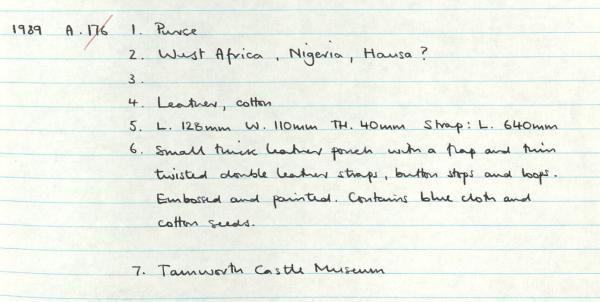 1989 A.176 1. Purse
2. West Africa, Nigeria, Hausa?
3.
4. Leather, cotton
5. L. 128mm W. 110mm TH. 40mm Strap: L. 640mm
6. Small thick leather pouch with a flap and thin
twisted double leather straps, button stops and loops.
Embossed and painted. Contains blue cloth and
cotton seeds.
7. Tamworth Castle Museum